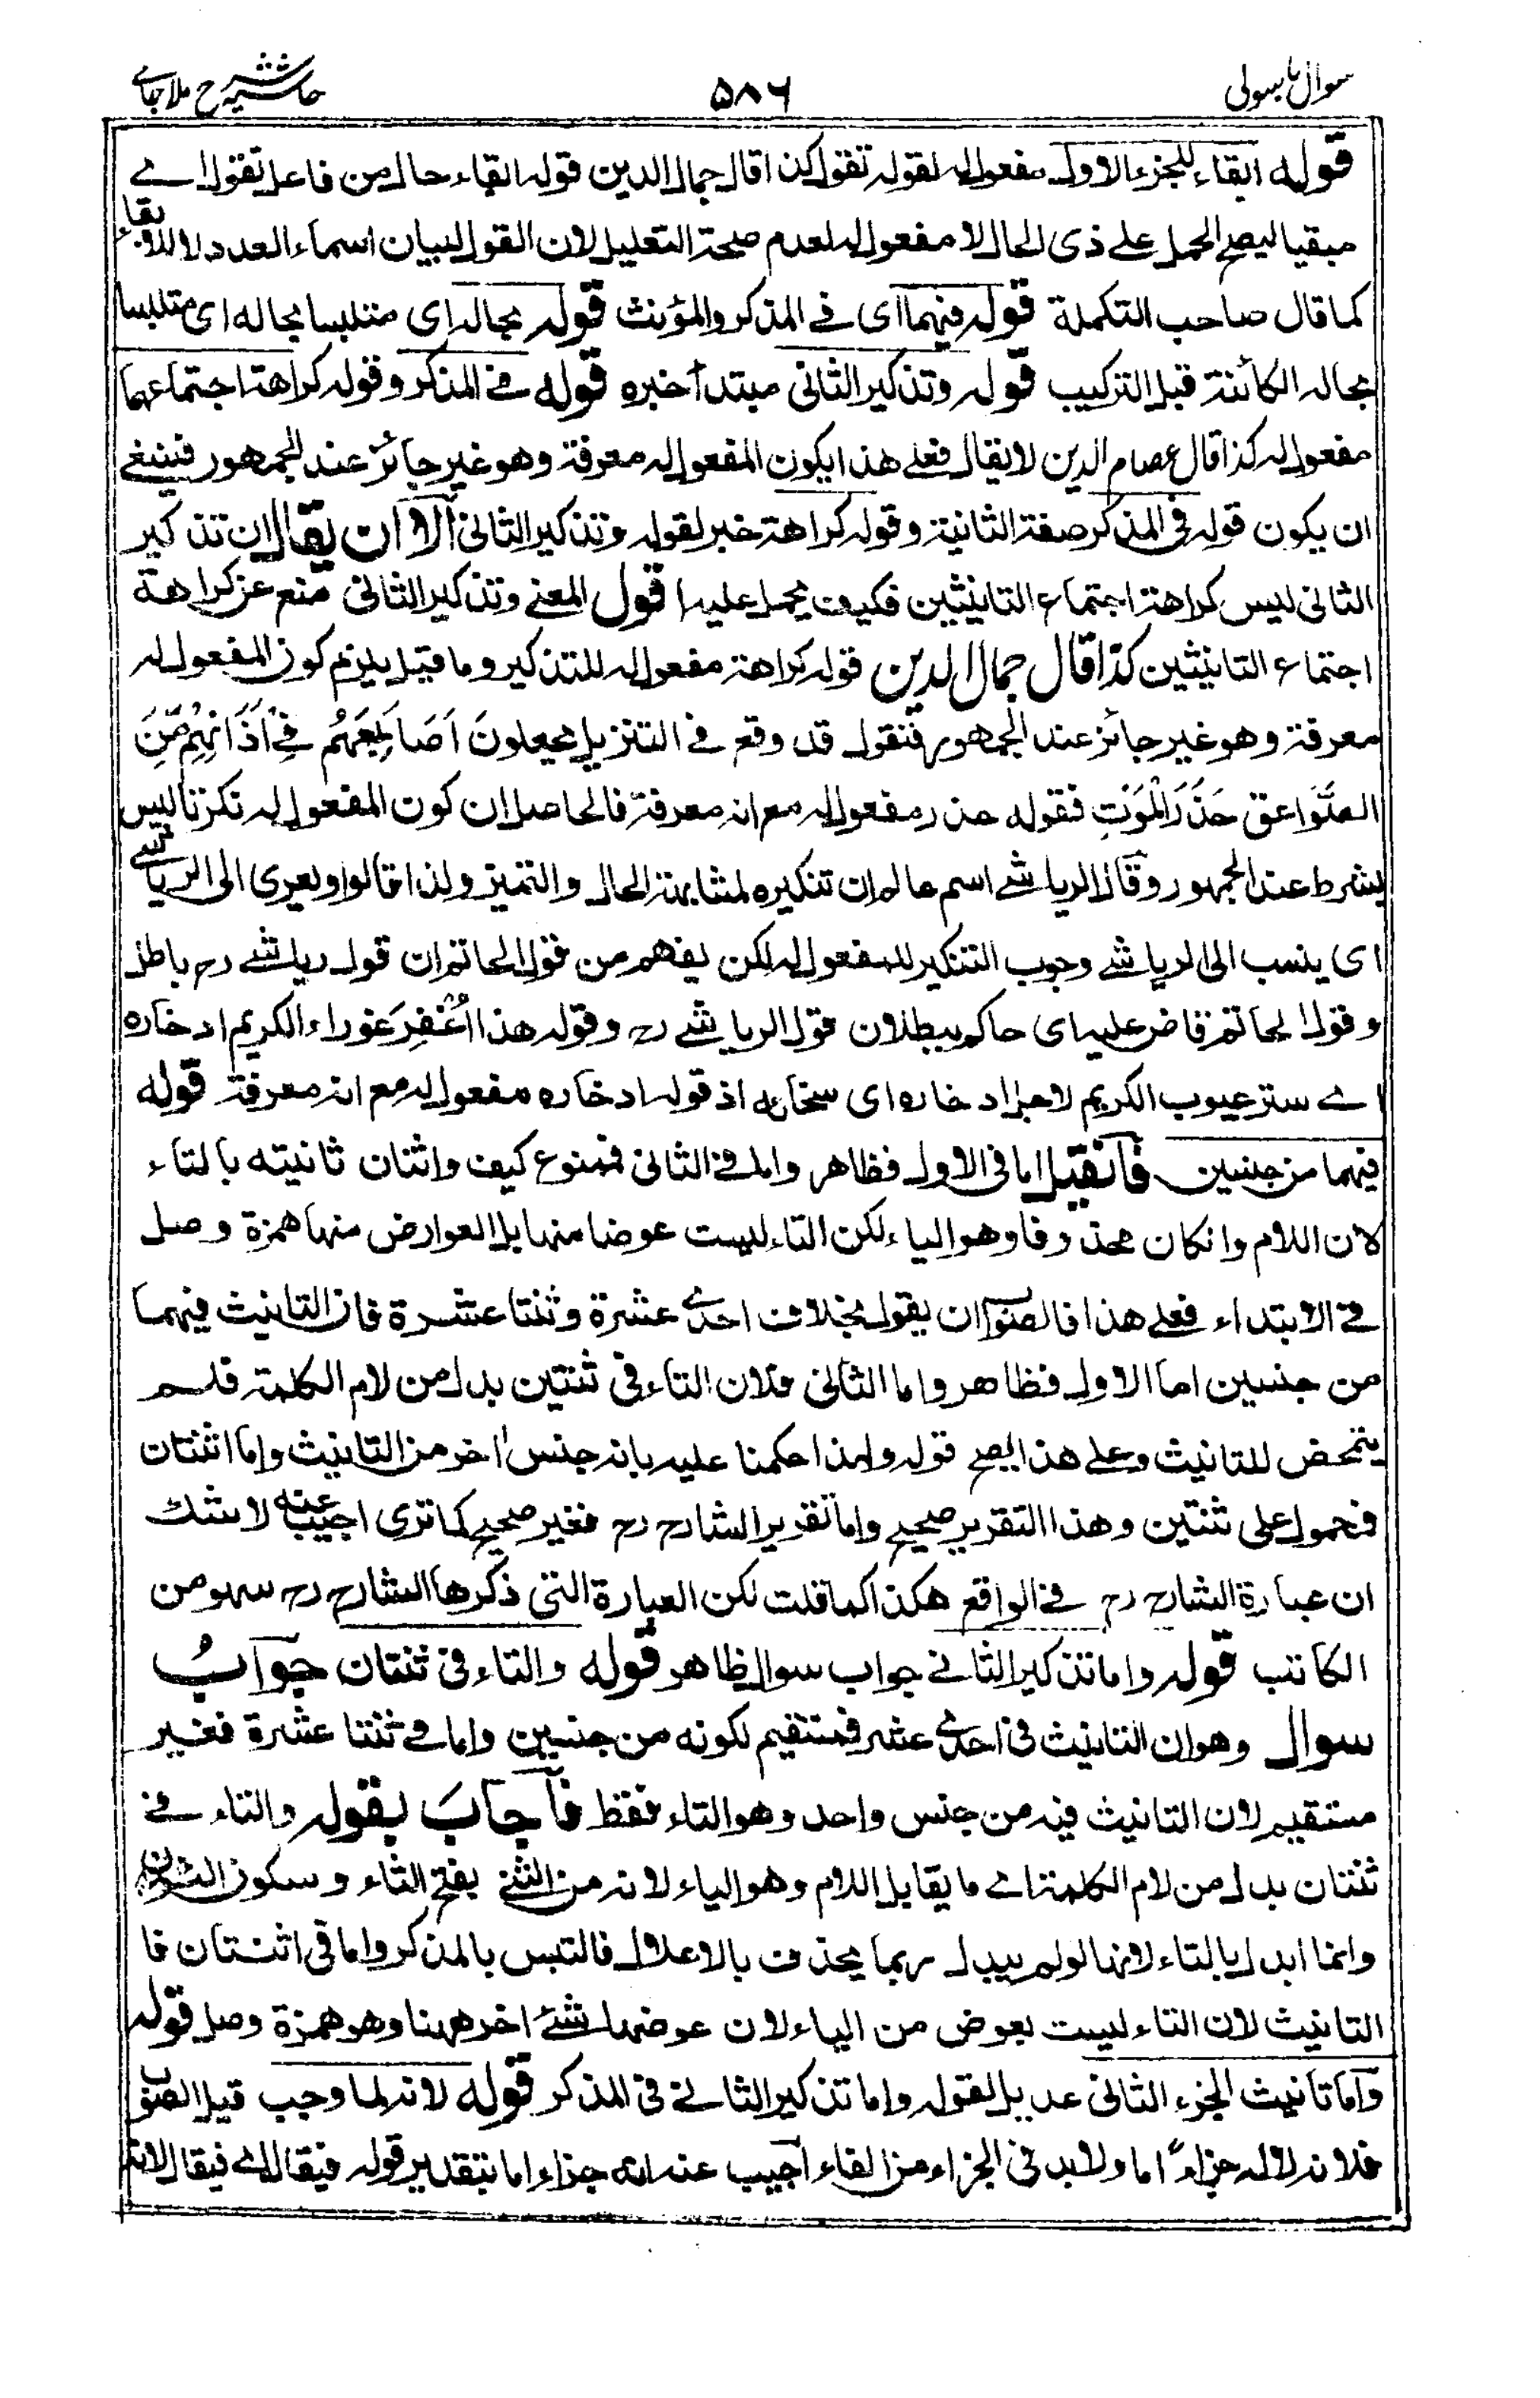 سوال باسولی ۵۸۶ حاشیہ شرح ملا جامے
قوله ابقاء للجزء الاول مفعول له لقوله تقول كذا قال جمال الدين قوله ابقاء حال من فاعل تقول اے
مبقيا ليصح الحمل على ذى الحال لا مفعول له لعدم صحة التعليل لان القول لبيان اسماء العدد لا للابقاء
كما قال صاحب التكملة قوله فيهما اى فے المذكر والمؤنث قوله بحاله اى متلبسا بحاله اى متلبسا
بحاله الكائنة قبل التركيب قوله وتذكير الثانى مبتدأ خبره قوله فے المذكر وقوله كراهة اجتماعهما
مفعول له كذا قال عصام الدين لا يقال فعلے هذا يكون المفعول له معرفة وهو غير جائز عند الجمهور فينبغے
ان يكون قوله فى المذكر صفة الثانية وقوله كراهة خبر لقوله وتذكير الثانى الا ان يقال ان تذكير
الثانى ليس كراهة اجتماع التانيثين فكيف يحمل عليه اقول المعنے وتذكير الثانى منع عن كراهة
اجتماع التانيثين كذا قال جمال الدين قوله كراهة مفعول له للتذكير وما قيل يلزم كون المفعول له
معرفة وهو غير جائز عند الجمهور فنقول قد وقع فے التنزيل يجعلون اَصَابِعَهُم فِے اٰذَانِهِم مِّنَ
الصَّوَاعق حَذَرَ الْمَوْتِ فقوله حذر مفعول له مع انه معرفة فالحاصل ان كون المفعول له نكرة ليس
بشرط عند الجمهور وقال الرياشے اسم عالم ان تنكيره لمشابهة الحال والتميز ولذا قالوا ويعزى الى الرياشے
اى ينسب الى الرياشے وجوب التنكير للمفعول له لكن يفهم من قول الحاتم ان قول رياشے رح باطل
وقول الحاتم قاض عليه اى حاكم ببطلان قول الرياشے رح وقوله هذا اُغْفِرَ عوراء الكريم ادخاره
اے ستر عيوب الكريم لاجل ادخاره اى سخائه اذ قوله ادخاره مفعول له مع انه معرفة قوله
فيهما من جنسين فان قيل اما فى الاول فظاهر واما فے الثانى فممنوع كيف واثنان ثانيته بالتاء
لان اللام وان كان محذوفا وهو الياء لكن التاء ليست عوضا منها بل العوارض منها همزة وصل
فے الابتداء فعلے هذا فالصواب ان يقول بخلاف احدے عشرة وثنتا عشرة فان التانيث فيهما
من جنسين اما الاول فظاهر واما الثانى فلان التاء فى ثنتين بدل من لام الكلمة فلم
يتمحض للتانيث وعلے هذا يصح قوله ولهذا حكمنا عليه بانه جنس اٰخر من التانيث واما اثنتان
فحمول على ثنتين وهذا التقرير صحيح واما تقرير الشارح رح فغير صحيح كما ترى اجيب عنه لا شك
ان عبارة الشارح رح فے الواقع هكذا كما قلت لكن العبارة التى ذكرها الشارح رح سهو من
الكاتب قوله واما تذكير الثانے جواب سوال ظاهر قوله والتاء فى ثنتان جوابُ
سوال وهو ان التانيث فى احدے عشر فمستقيم لكونه من جنسين واما فے ثنتا عشرة فغير
مستقيم لان التانيث فيه من جنس واحد وهو التاء فقط فاجابَ بقوله والتاء فے
ثنتان بدل من لام الكلمة اے ما يقابل اللام وهو الياء لانه من الثنے بفتح الثاء وسكون النون
وانما ابدل بالتاء لانها لو لم يبدل ربما يحذف بالاعلال فالتبس بالمذكر واما فى اثنتان فا
التانيث لان التاء ليست بعوض من الياء لان عوضها شئے اخر ههنا وهو همزة وصل قوله
واما تانيث الجزء الثانى عديل لقوله واما تذكير الثانے فى المذكر قوله لانه لما وجب قيل الصواب
فلانه لا له جزاءً اما ولا بد فى الجزاء من الفاء اجيب عنه انه جزاء اما بتقدير قوله فيقال اے فيقال لانه